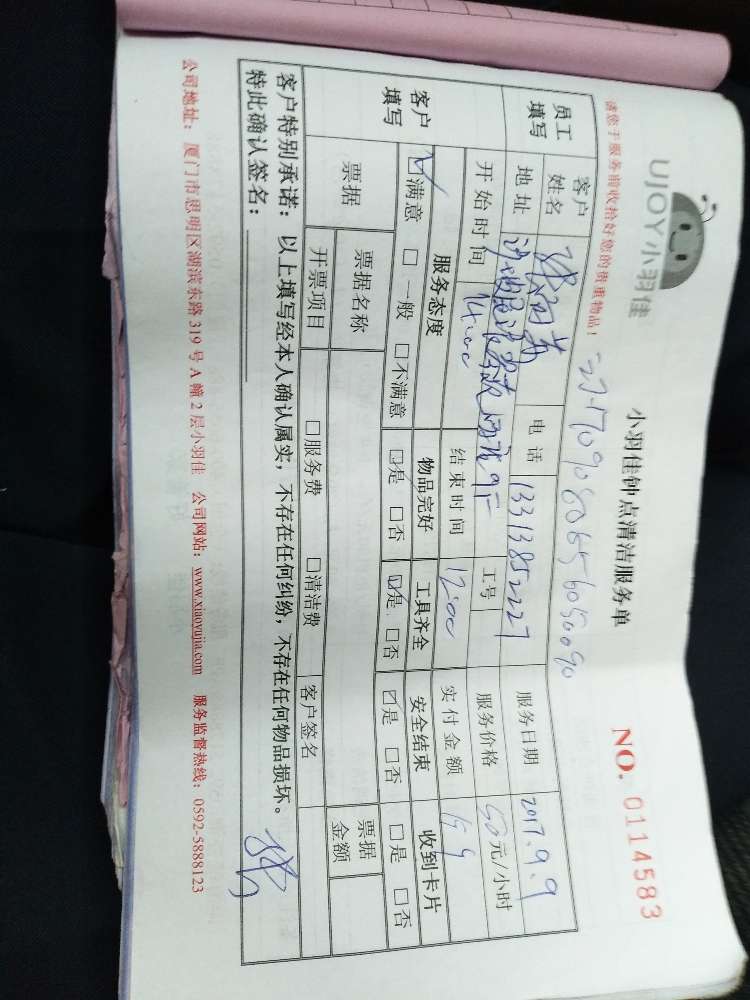 UJOY小羽佳
小羽佳钟点清洁服务单
NO. 0114583
请您于服务前收拾好您的贵重物品！
员工填写
客户姓名
电话 13313852227
服务日期 2017.9.9
地址
工号
服务价格 50元/小时
开始时间 14:00
结束时间 12:00
实付金额 159
客户填写
服务态度 物品完好 工具齐全 安全结束 收到卡片
☑满意 □一般 □不满意 ☑是 □否 ☑是 □否 ☑是 □否 □是 □否
票据
票据名称
票据金额
开票项目 □服务费 □清洁费 客户签名
客户特别承诺：以上填写经本人确认属实，不存在任何纠纷，不存在任何物品损坏。
特此确认签名：
公司地址：厦门市思明区湖滨东路 319 号 A 幢 2 层小羽佳 公司网站：www.xiaoyujia.com 服务监督热线：0592-5888123